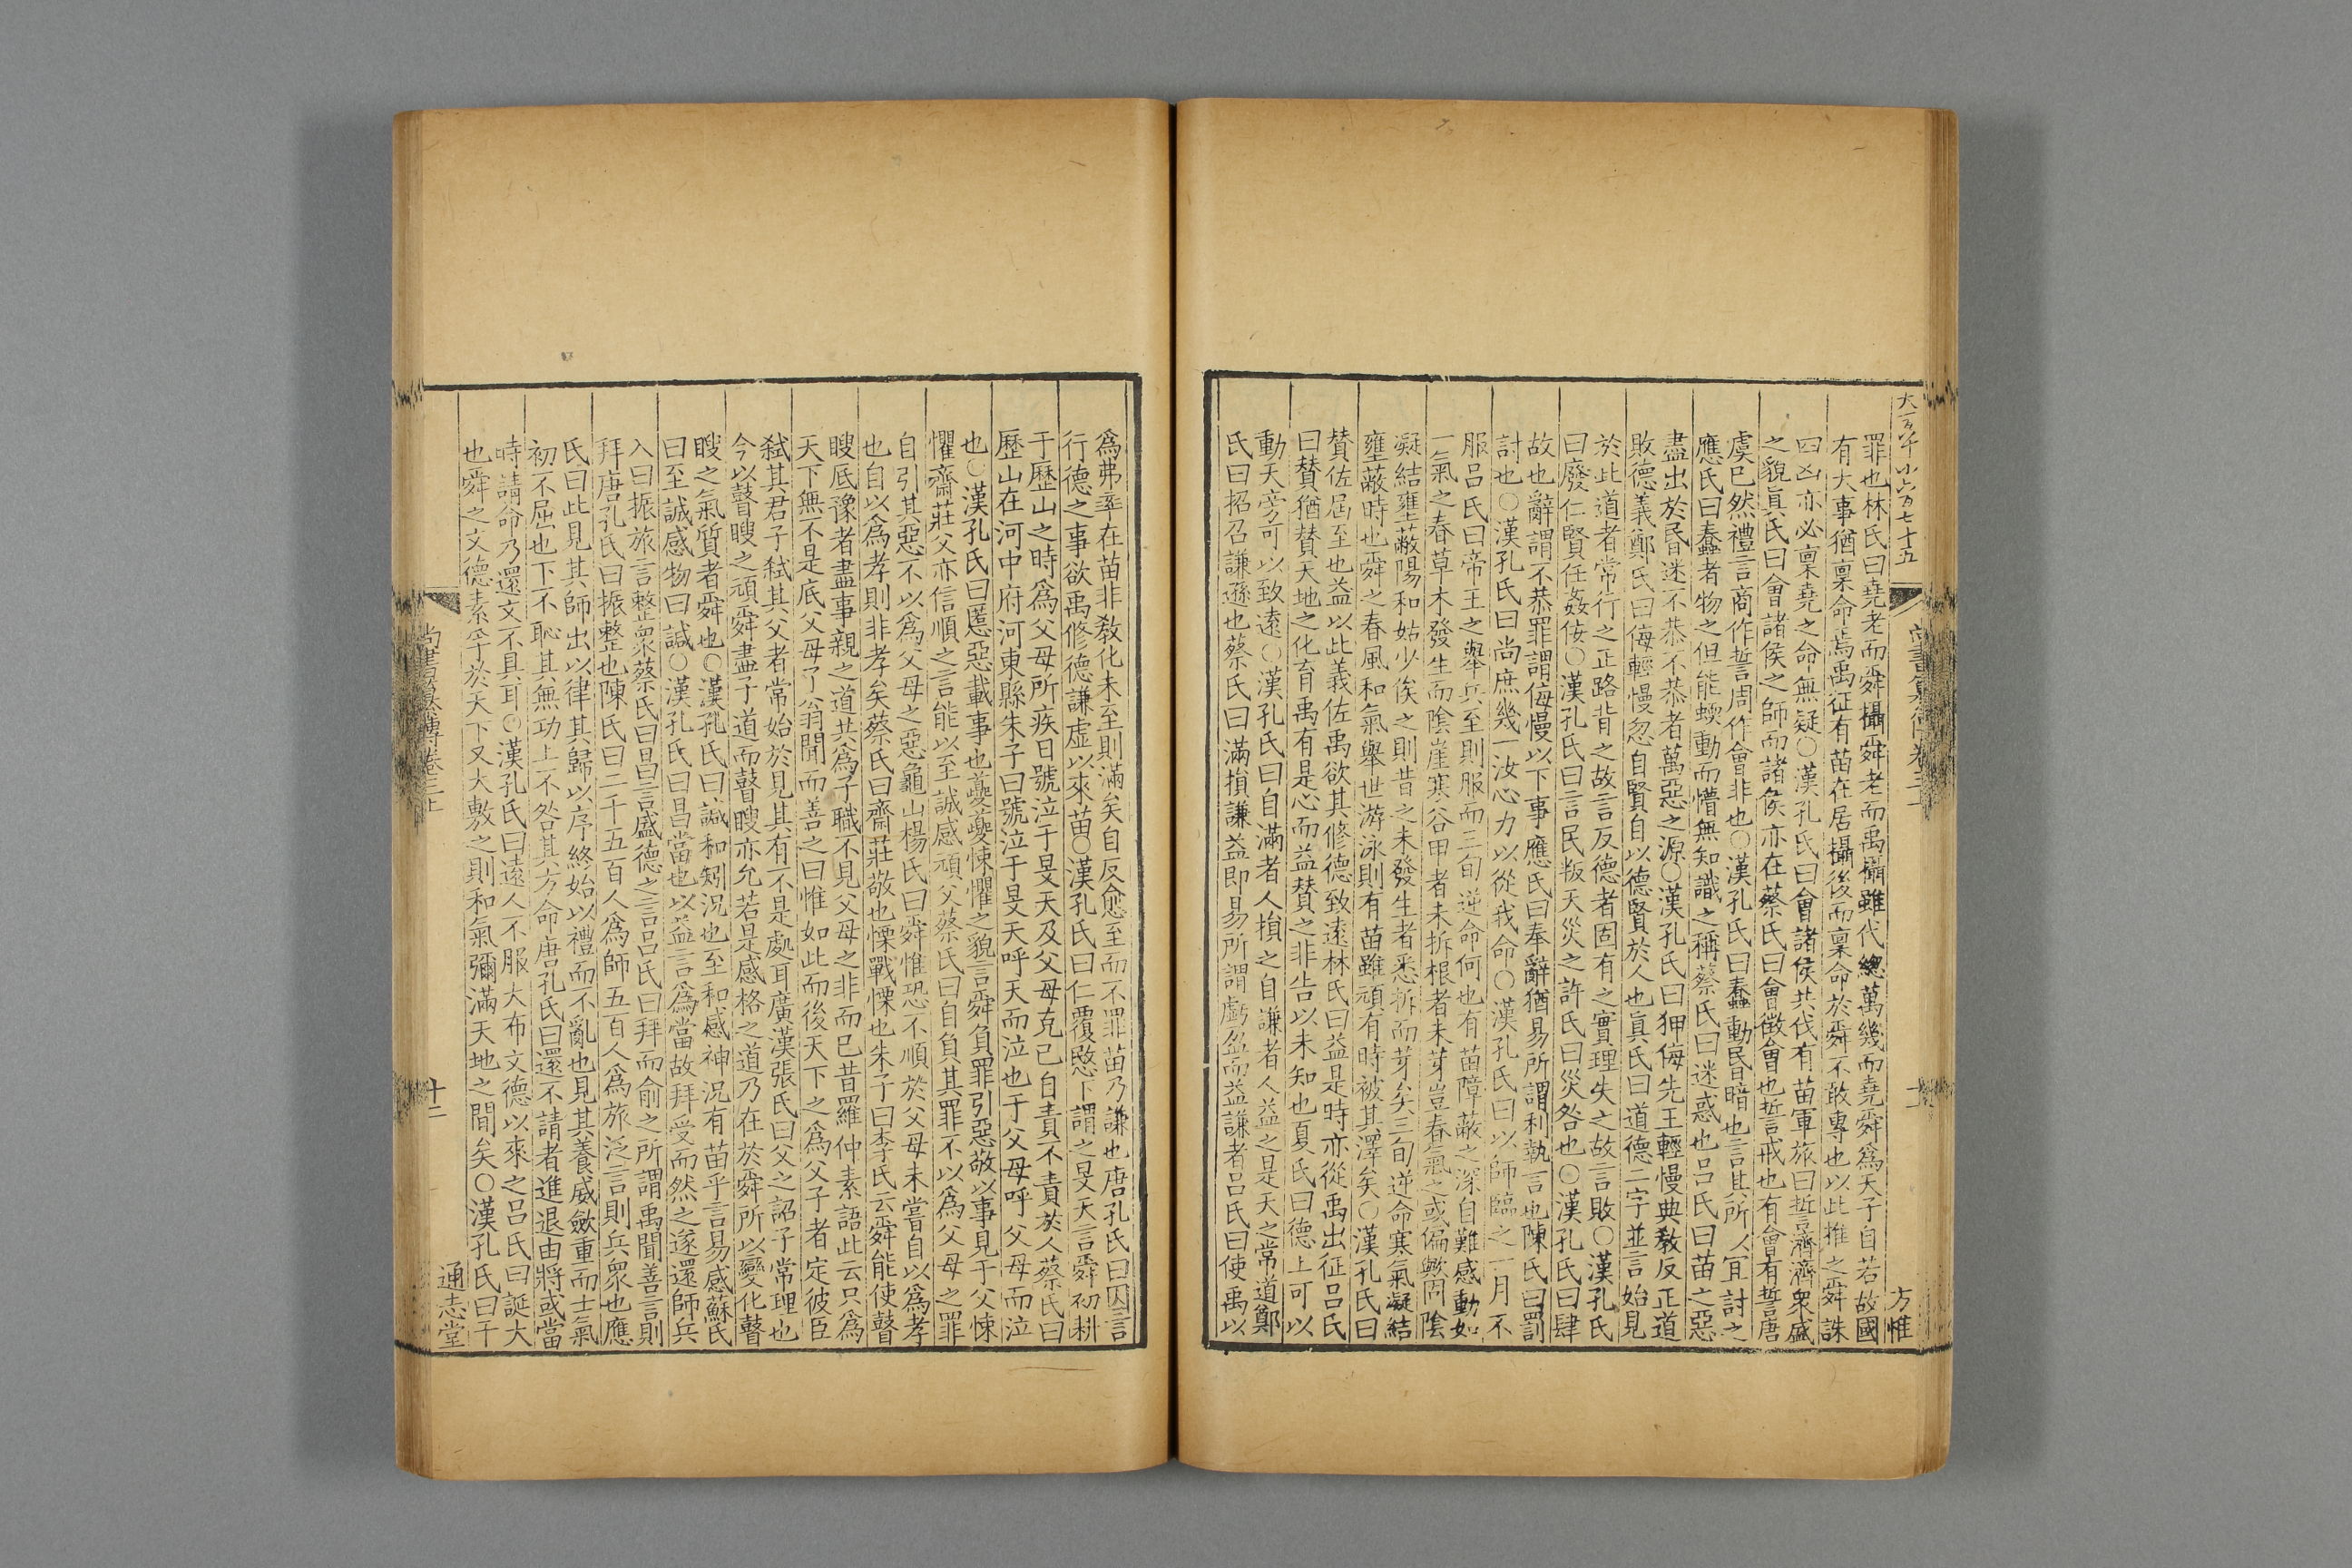 罪也林氏曰堯老而舜攝舜老而禹攝雖代總萬幾而堯舜爲天子自若故國
有大事猶稟命焉禹征有苗在居攝後而稟命於舜不敢專也以此推之舜誅
四凶亦必稟堯之命無疑○漢孔氏曰會諸侯共伐有苗軍旅曰誓濟濟衆盛
之貌真氏曰會諸侯之師而諸侯亦在蔡氏曰會徵會也誓戒也有會有誓唐
虞已然禮言商作誓周作會非也○漢孔氏曰蠢動昬暗也言其所以宜討之
應氏曰蠢者物之但能蝡動而懵無知識之稱蔡氏曰迷惑也呂氏曰苗之惡
盡出於昬迷不恭不恭者萬惡之源○漢孔氏曰狎侮先王輕慢典敎反正道
敗德義鄭氏曰侮輕慢忽自賢自以德賢於人也真氏曰道德二字並言始見
於此道者常行之正路背之故言反德者固有之實理失之故言敗○漢孔氏
曰廢仁賢任姦佞○漢孔氏曰言民叛天災之許氏曰災咎也○漢孔氏曰肆
故也辭謂不恭罪謂侮慢以下事應氏曰奉辭猶易所謂利執言也陳氏曰罰
討也○漢孔氏曰尚庶幾一汝心力以從我命○漢孔氏曰以師臨之一月不
服呂氏曰帝王之舉兵至則服而三旬逆命何也有苗障蔽之深自難感動如
一氣之春草木發生而陰崖寒谷甲者未拆根者未芽豈春氣之或偏歟固陰
凝結壅蔽陽和姑少俟之則昔之未發生者悉拆而芽矣三旬逆命寒氣凝結
壅蔽時也舜之春風和氣舉世游泳則有苗雖頑有時被其澤矣○漢孔氏曰
贊佐屆至也益以此義佐禹欲其修德致遠林氏曰益是時亦從禹出征呂氏
曰贊猶贊天地之化育禹有是心而益贊之非告以未知也夏氏曰德上可以
動天旁可以致遠○漢孔氏曰自滿者人損之自謙者人益之是天之常道鄭
氏曰招召謙遜也蔡氏曰滿損謙益即易所謂虧盈而益謙者呂氏曰使禹以
方惟
爲弗率在苗非敎化未至則滿矣自反愈至而不罪苗乃謙也唐孔氏曰因言
行德之事欲禹修德謙虛以來苗○漢孔氏曰仁覆愍下謂之旻天言舜初耕
于歷山之時爲父母所疾日號泣于旻天及父母克己自責不責於人蔡氏曰
歷山在河中府河東縣朱子曰號泣于旻天呼天而泣也于父母呼父母而泣
也○漢孔氏曰慝惡載事也夔夔悚懼之貌言舜負罪引惡敬以事見于父悚
懼齋莊父亦信順之言能以至誠感頑父蔡氏曰自負其罪不以爲父母之罪
自引其惡不以爲父母之惡龜山楊氏曰舜惟恐不順於父母未嘗自以爲孝
也自以爲孝則非孝矣蔡氏曰齋莊敬也慄戰慄也朱子曰李氏云舜能使瞽
瞍厎豫者盡事親之道共爲子職不見父母之非而已昔羅仲素語此云只爲
天下無不是底父母了翁聞而善之曰惟如此而後天下之爲父子者定彼臣
弒其君子弒其父者常始於見其有不是處耳廣漢張氏曰父之詔子常理也
今以瞽瞍之頑舜盡子道而瞽瞍亦允若是感格之道乃在於舜所以變化瞽
瞍之氣質者舜也○漢孔氏曰諴和矧況也至和感神況有苗乎言易感蘇氏
曰至誠感物曰諴○漢孔氏曰昌當也以益言爲當故拜受而然之遂還師兵
入曰振旅言整衆蔡氏曰昌言盛德之言呂氏曰拜而俞之所謂禹聞善言則
拜唐孔氏曰振整也陳氏曰二千五百人爲師五百人爲旅泛言則兵衆也應
氏曰此見其師出以律其歸以序終始以禮而不亂也見其養威斂重而士氣
初不屈也下不恥其無功上不咎其方命唐孔氏曰還不請者進退由將或當
時請命乃還文不具耳○漢孔氏曰遠人不服大布文德以來之呂氏曰誕大
也舜之文德素孚於天下又大敷之則和氣彌滿天地之間矣○漢孔氏曰干
尚書纂傳卷三上
十二
通志堂